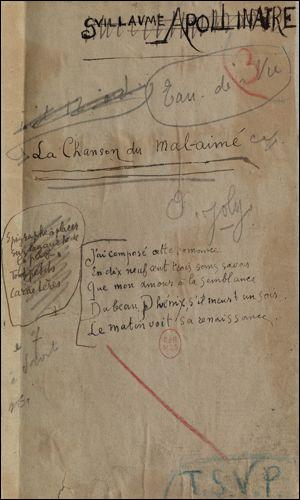 GUILLAUME APOLLINAIRE
3
Eau-de-Vie
La Chanson du mal-aimé
O. Joly
Epigraphe à placer
Tout petits
Caractères
J'ai composé cette romance
En dix neuf cent trois sans savoir
Que mon amour à la semblance
Du beau Phénix, s'il meurt un soir
Le matin voit sa renaissance.
T S V P